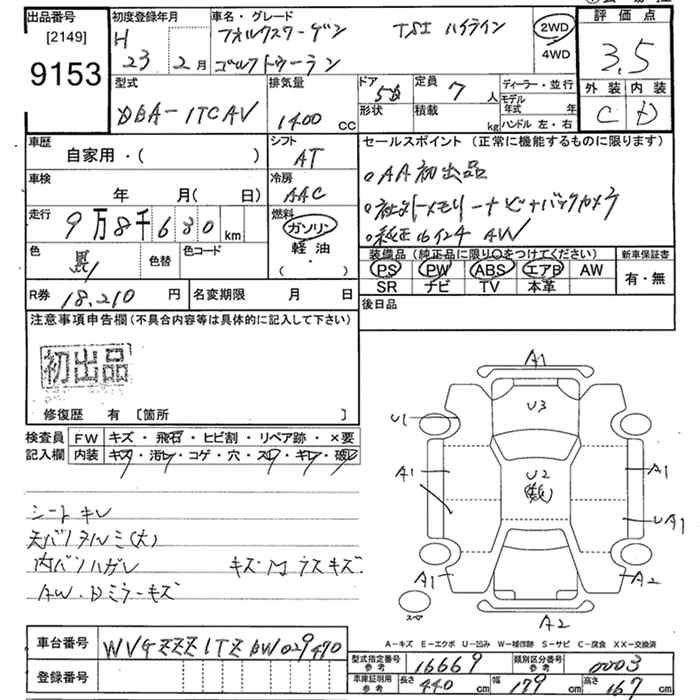 出品番号
[2149]
9153
初度登録年月
H 23 2月
車名・グレード
フォルクスワーゲン TSI ハイライン
ゴルフトゥーラン
2WD
4WD
評価点
3.5
外装 内装
C D
型式
DBA-1TCAV
排気量
1400 CC
ドア
5
形状
定員
7人
積載 kg
ディーラー・並行
モデル年式 年
ハンドル 左・右
車歴
自家用・( )
シフト
AT
車検
年 月( 日)
冷房
AAC
走行
9万8千680 km
燃料
ガソリン
軽油
( ・ )
色
黒
色替
色コード
R券 18,210 円
名変期限 月 日
セールスポイント (正常に機能するものに限ります)
・AA初出品
・社外メモリーナビ+バックカメラ
・純正16インチAW
装備品 (純正品に限り○をつけてください)
PS PW ABS エアB AW
SR ナビ TV 本革
新車保証書
有・無
後日品
注意事項申告欄 (不具合内容等は具体的に記入して下さい)
初出品
修復歴 有 [箇所 ]
検査員記入欄
FW キズ・飛石・ヒビ割・リペア跡・×要
内装 キズ・汚レ・コゲ・穴・スレ・キレ・破レ
シートキレ
天バリタルミ(大)
内バリハガレ キズMラスキズ
AW・Dミラーキズ
A1
U3
U1
A1
U2
A1
UA1
A1
A2
A2
スペア
A-キズ E-エクボ U-凹み W-補修跡 S-サビ C-腐食 XX-交換済
車台番号
WVGZZZ1TZBW029470
登録番号
型式指定番号 参考 16669
類別区分番号 参考 0003
車庫証明用 参考 長さ 440 cm 幅 179 cm 高さ 167 cm